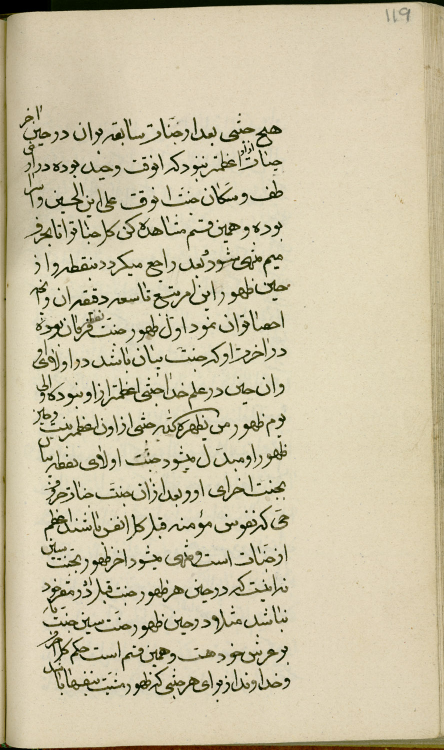 119
هیچ جنتی بعد از جنات سابقه بوان در حین اخر
جنات از او اعظمتر نبود که انوقت وحید بوده در ارض
طف و سکان جنت انوقت علی ابن الحسین و اسرا
بوده و همین قسم مشاهده کن کل جنات را تا بحرف
میم منتهی میشود بعد راجع میگردد بنقطه و از
حین ظهور این امر بتبع تاسعه دقیقه ان و انچه
احصا توان نمود اول ظهور جنت نقطه فرقان بوده
در اخرت او که جنت بیان باشد در اولای او
و ان حین در علم خدا جنتی اعظمتر از او نبوده والی
یوم ظهور من یظهره الله جنتی از اون اعظمتر نیست و حین
ظهور او مبدل میشود جنت اولای نقطه بیان
بجنت اخرای او و بعد از ان جنت خاتر حروف
حی که نفوس مؤمنه قبل کل انفس باشند اعظم
از جنات است و منتهی میشود اخر ظهور بجنت سین
نه اینست که در حین هر ظهور جنت قبل در مقر خود
نباشد مثلا در حین ظهور جنت سین جنت با
بر عرش خود هست و همین قسم است حکم کل حروف
و خداوند از برای هر جنتی که ظهور مشیت بنفسها باشد